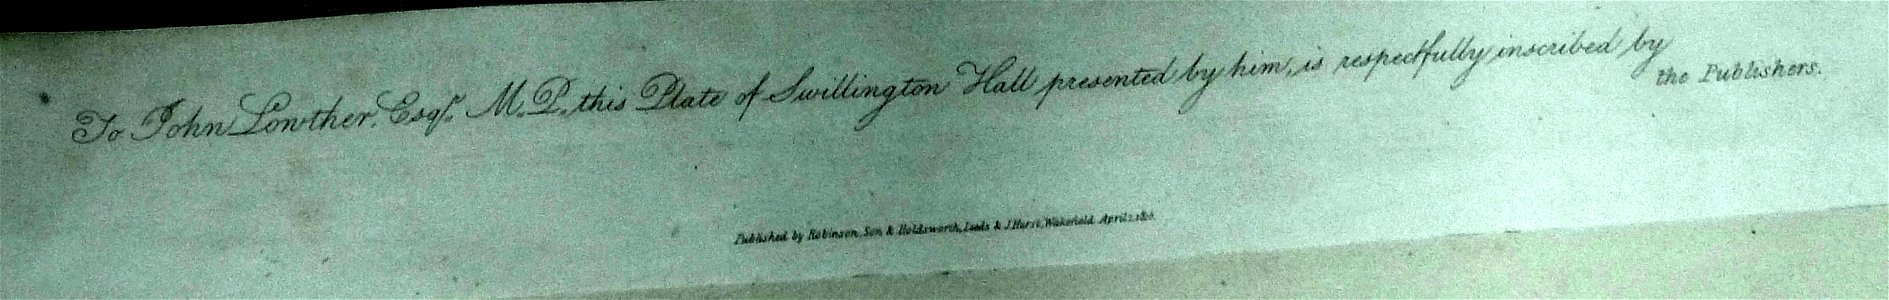 To John Lowther, Esqr. M.P. this Plate of Swillington Hall presented by him, is respectfully inscribed by
the Publishers.
Published by Robinson, Son & Holdsworth, Leeds & J. Hurst, Wakefield. April